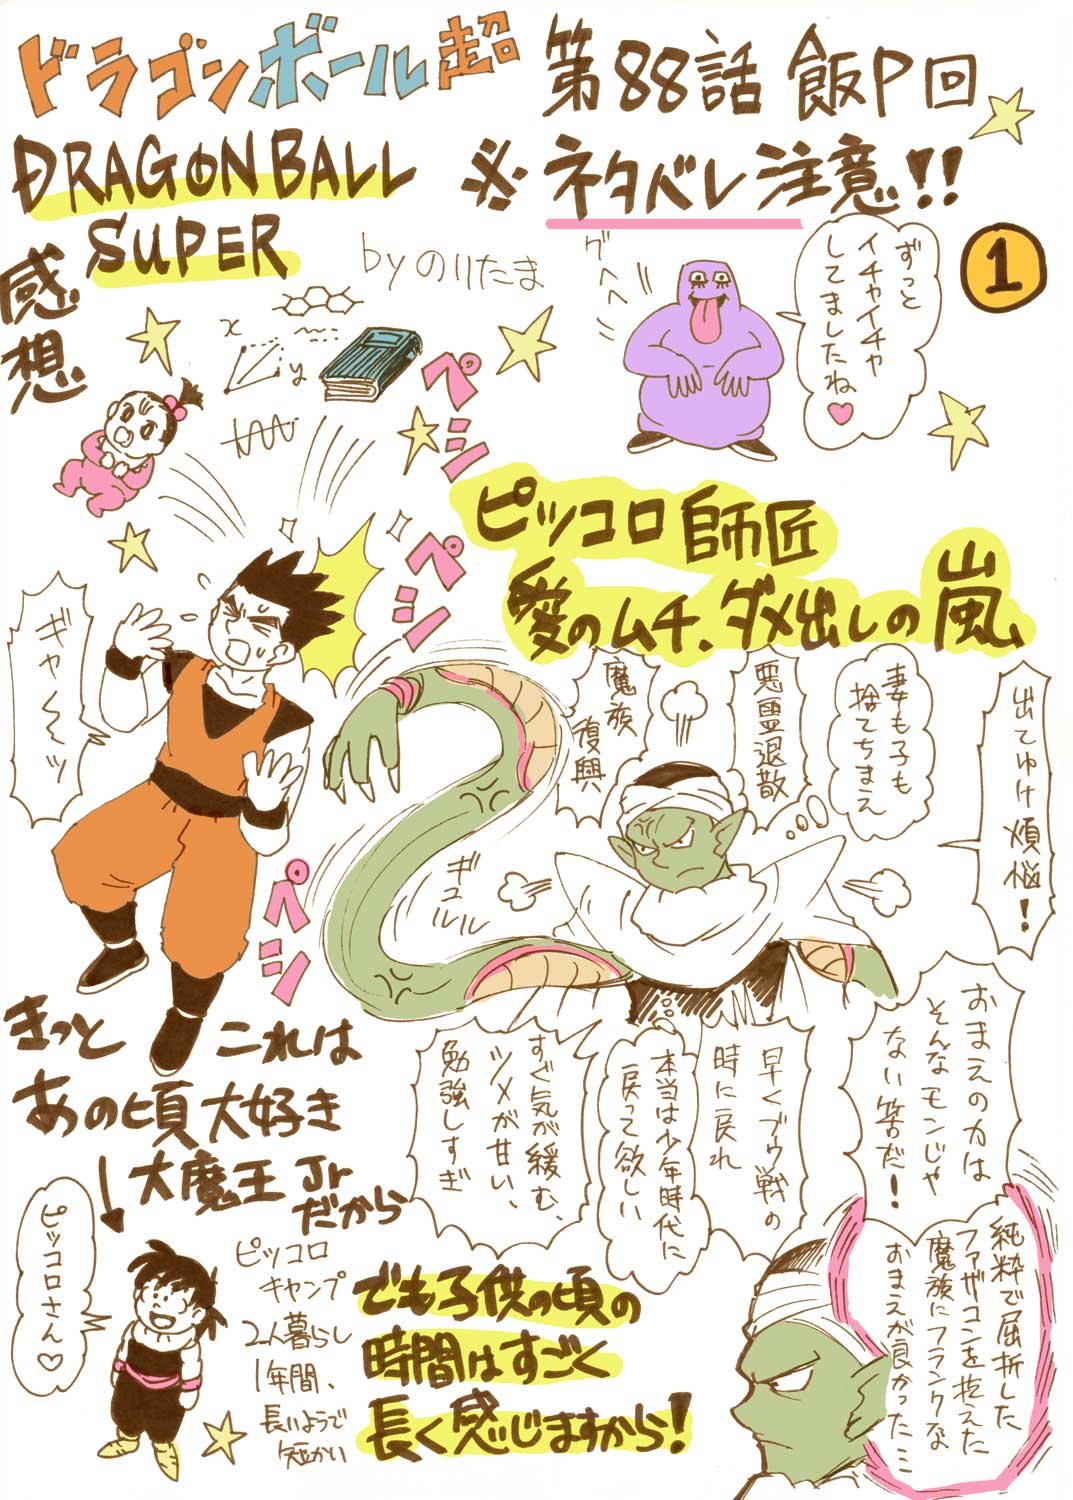 ドラゴンボール超
第88話 飯P回
DRAGON BALL
SUPER
※ネタバレ注意!!
感想
byのりたま
1
グヘヘ
ずっと
イチャイチャ
してましたね♥
x
y
ペシ
ペシ
ペシ
ピッコロ師匠
愛のムチ、ダメ出しの嵐
ギャ〜〜ッ
魔族
復興
悪霊退散
妻も子も
捨てちまえ
出てゆけ煩悩!
ギュルルル
おまえの力は
そんなモンじゃ
ない筈だ!
早くブウ戦の
時に戻れ
本当は少年時代に
戻って欲しい
すぐ気が緩む、
ツメが甘い、
勉強しすぎ
きっと これは
あの頃大好き
大魔王Jr
だから
ピッコロさん♡
ピッコロ
キャンプ
2人暮らし
1年間、
長いようで
短かい
でも子供の頃の
時間はすごく
長く感じますから!
純粋で屈折した
ファザコンを抱えた
魔族にフランクな
おまえが良かった…